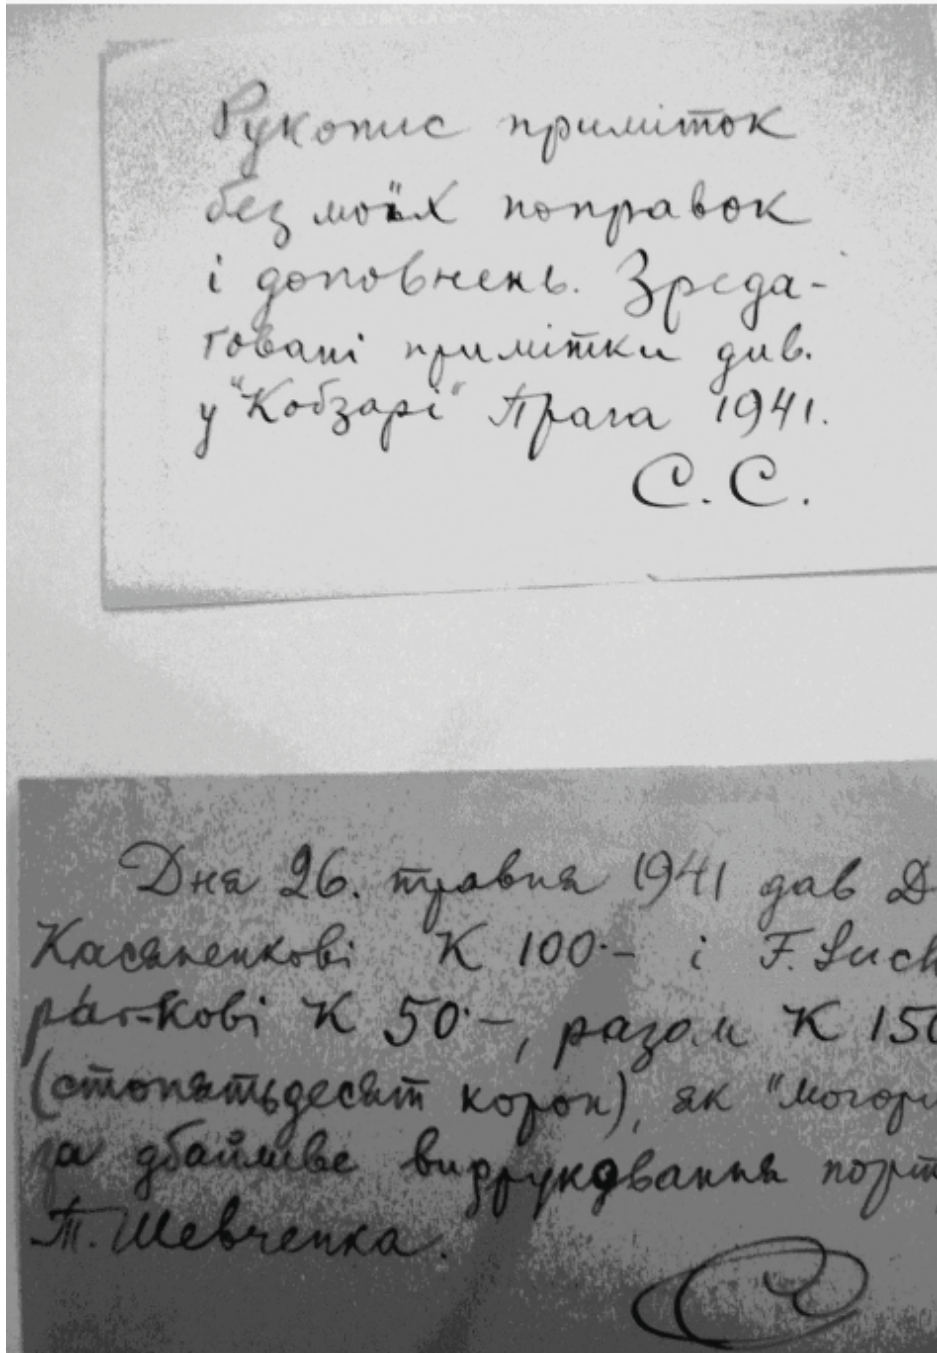 Рукопис приміток
без моїх поправок
і доповнень. Зреда-
говані примітки див.
у "Кобзарі" Прага 1941.
С. С.
Дня 26. травня 1941 дав
Касяненкові К 100·- і F.
К 50·-, разом К 150
(стопятьдесят корон), як
за дбайливе видруковання
Т. Шевченка.